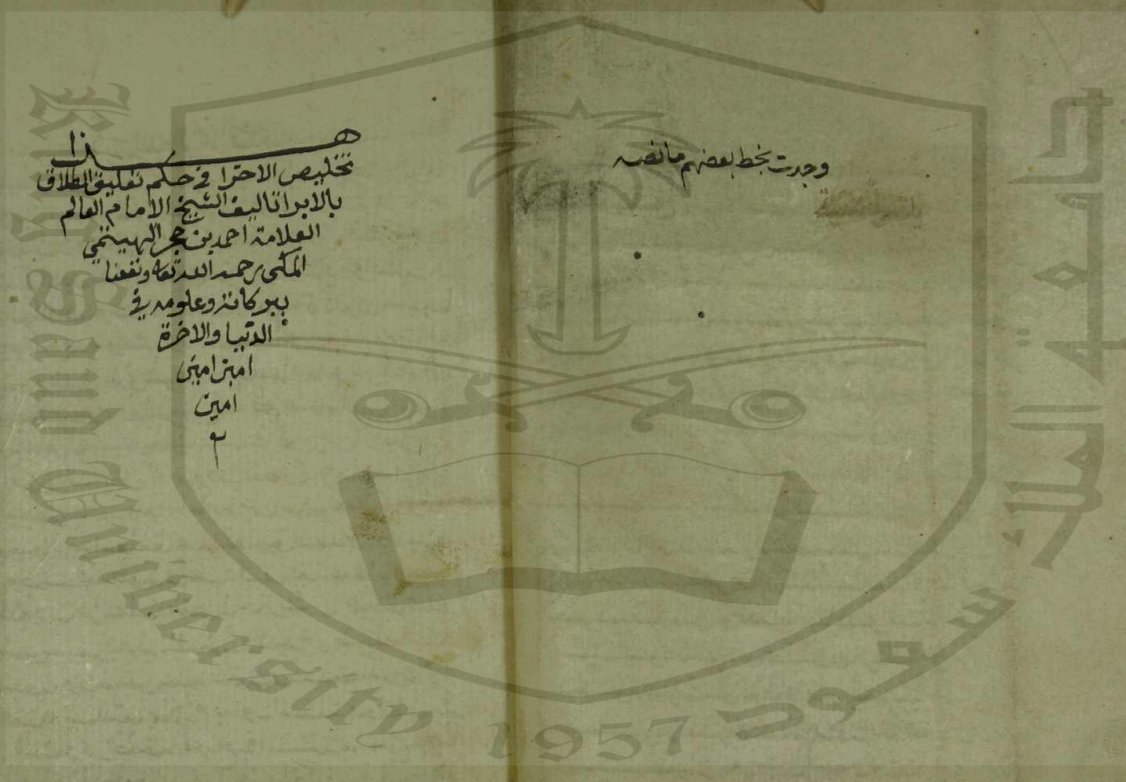 وجدت بخط بعضهم ما نصه
هذا
تخليص الاحرا في حكم تعليق الطلاق
بالابرا تاليف الشيخ الامام العالم
العلامة احمد بن حجر الهيتمي
المكي رحمه الله تعالى ونفعنا
ببركاته وعلومه في
الدنيا والاخرة
امين امين
امين
جامعة الملك سعود
King Saud University 1957